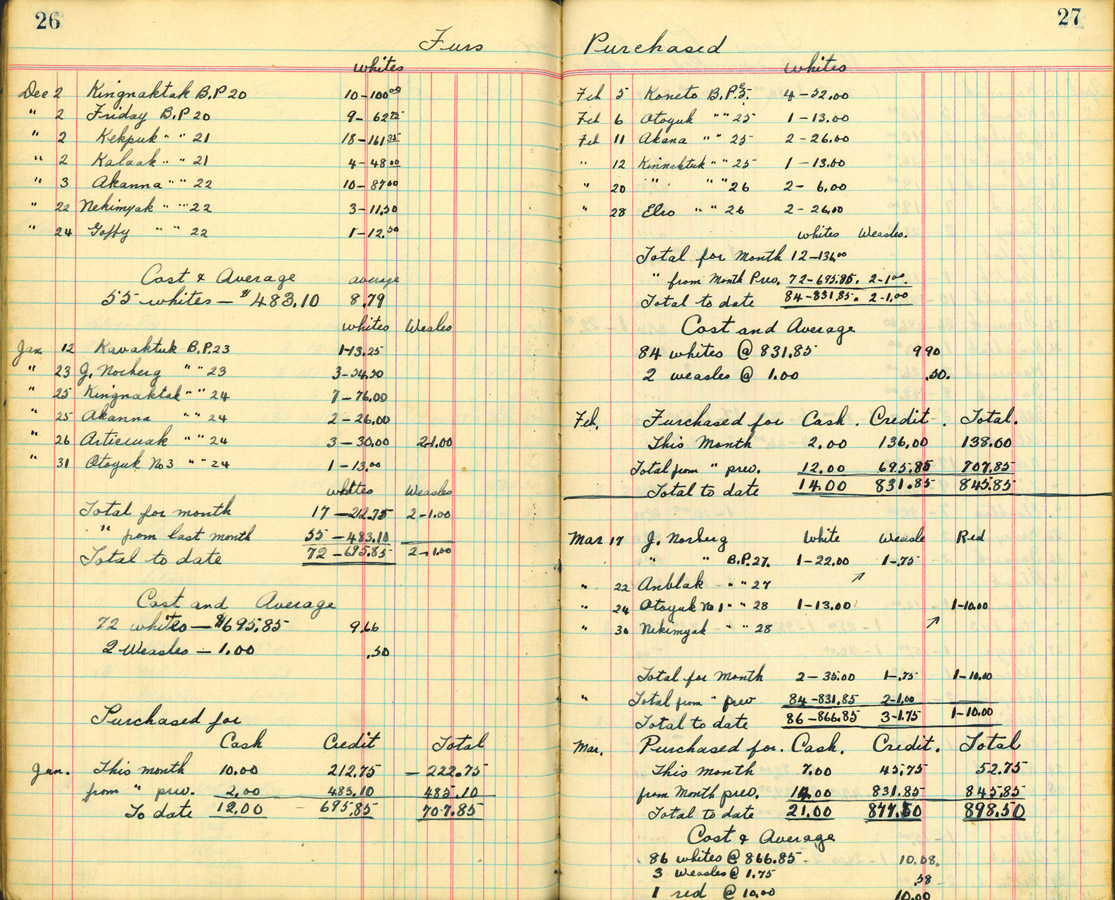 26
Furs
Whites
Dec 2 Kingnaktak B.P 20 10-100⁰⁰
" 2 Friday B.P 20 9- 62⁷⁵
" 2 Kekpuk " " 21 18-161³⁵
" 2 Kalaak " " 21 4-48⁰⁰
" 3 Akanna " " 22 10-87⁰⁰
" 22 Nekimyak " " 22 3-11,50
" 24 Goffy " " 22 1-12.⁵⁰
Cost & Average average
55 whites — $483,10 8.79
whites Weales
Jan 12 Kavaktuk B.P.23 1-13.25
" 23 J. Norberg " " 23 3-54,50
" 25 Kingnaktak " " 24 7-76,00
" 25 Akanna " " 24 2-26,00
" 26 Articiwak " " 24 3-30,00 2-1.00
" 31 Otoyuk No3 " " 24 1-13,⁰⁰
whites Weasles
Total for month 17-212,75 2-1.00
" from last month 55-483,10
Total to date 72-695.85 2-1.00
Cost and Average
72 whites — $695,85 9.66
2 Weasles — 1.00 ,50
Purchased for
Cash Credit Total
Jan. This month 10.00 212.75 — 222.75
from " prev. 2,00 483.10 485.10
To date 12.00 - 695,85 707.85
27
Purchased
Whites
Feb 5 Koneto B.P. 4-52.00
Feb 6 Otoyuk " " 25 1-13.00
Feb 11 Akana " " 25 2-26.00
" 12 Kinnaktuk " " 25 1-13.00
" 20 " " " " 26 2- 6,00
" 28 Elso " " 26 2-26,00
whites Weasles.
Total for Month 12-136⁰⁰
" from Month Prev. 72-695.85. 2-1⁰⁰.
Total to date 84-831.85. 2-1,00
Cost and Average
84 whites @ 831.85 9 90
2 weasles @ 1.00 .50.
Feb, Purchased for Cash. Credit. Total.
This Month 2.00 136,00 138.00
Total from " prev. 12.00 695.85 707.85
Total to date 14.00 831.85 845.85
Mar 17 J. Norberg White Weasle Red
" B.P.27. 1-22.00 1-.75
" 22 Anblak " " 27
" 24 Otoyuk No 1 " " 28 1-13.00 1-10.00
" 30 Nekimyak " " 28
Total for Month 2-35.00 1-.75 1-10.00
" Total from " prev 84-831.85 2-1.00
Total to date 86-866.85 3-1.75 1-10.00
Mar. Purchased for. Cash. Credit. Total
This month 7.00 45.75 52.75
from Month prev. 14.00 831.85 845.85
Total to date 21.00 877.60 898.50
Cost & Average
86 whites @ 866.85 10.08.
3 Weasles @ 1.75 .58
1 red @ 10.00 10.00